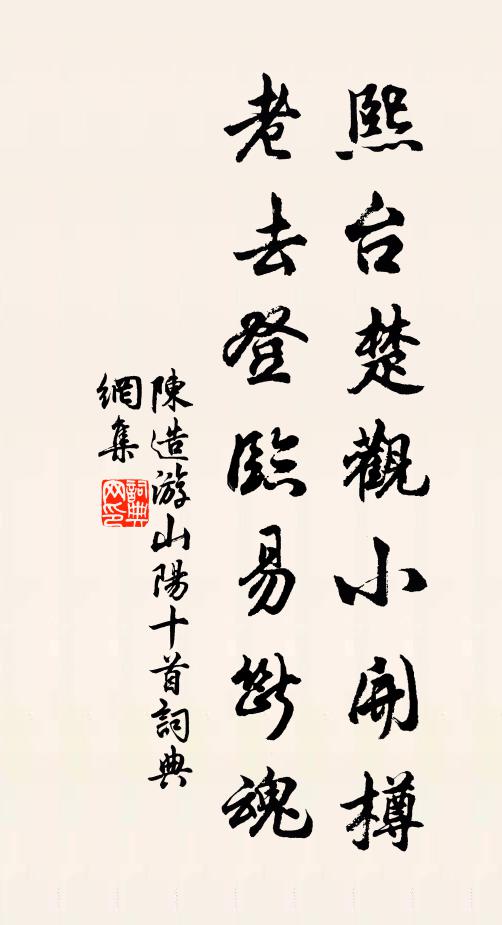 熙台楚觀小開樽
老去登臨易斷魂
陳造游山陽十首詞典
網集
詞典
网印